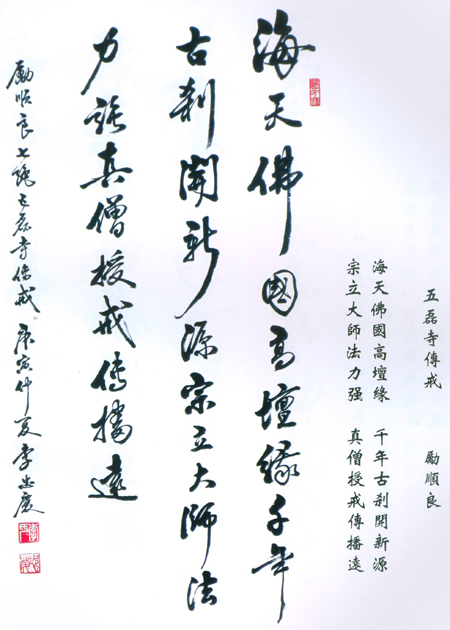 五磊寺傳戒 勵順良
海天佛國高壇緣 千年古刹開新源
宗立大師法力强 真僧授戒傳播遠
海天佛國高壇緣千年
古刹開新源宗立大師法
力强真僧授戒傳播遠
勵順良七絕五磊寺傳戒。庚寅仲夏李